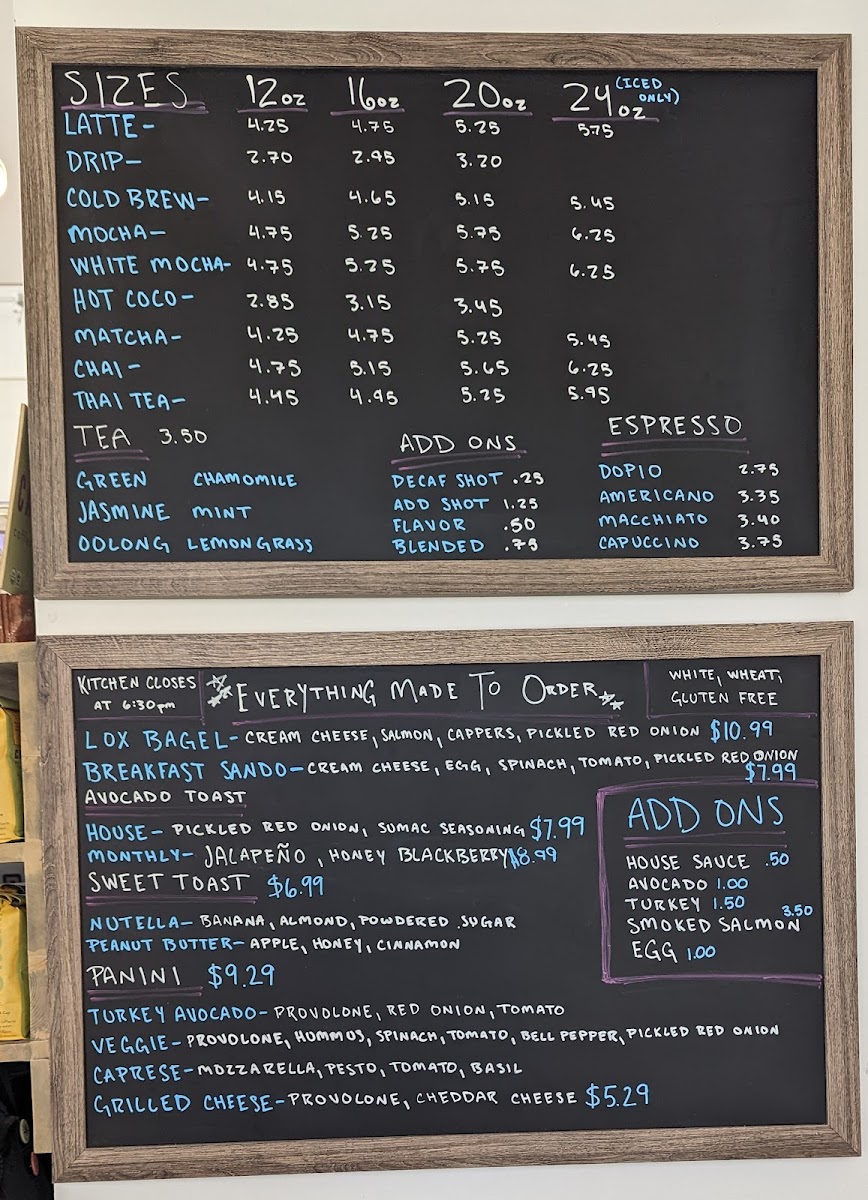 SIZES 12oz 16oz 20oz 24oz (ICED ONLY)
LATTE- 4.25 4.75 5.25 5.75
DRIP- 2.70 2.95 3.20
COLD BREW- 4.15 4.65 5.15 5.45
MOCHA- 4.75 5.25 5.75 6.25
WHITE MOCHA- 4.75 5.25 5.75 6.25
HOT COCO- 2.85 3.15 3.45
MATCHA- 4.25 4.75 5.25 5.45
CHAI- 4.75 5.15 5.65 6.25
THAI TEA- 4.45 4.95 5.25 5.95
TEA 3.50
GREEN CHAMOMILE
JASMINE MINT
OOLONG LEMONGRASS
ADD ONS
DECAF SHOT .25
ADD SHOT 1.25
FLAVOR .50
BLENDED .75
ESPRESSO
DOPIO 2.75
AMERICANO 3.35
MACCHIATO 3.40
CAPUCCINO 3.75
KITCHEN CLOSES
AT 6:30pm
EVERYTHING MADE TO ORDER
WHITE, WHEAT,
GLUTEN FREE
LOX BAGEL- CREAM CHEESE, SALMON, CAPPERS, PICKLED RED ONION $10.99
BREAKFAST SANDO- CREAM CHEESE, EGG, SPINACH, TOMATO, PICKLED RED ONION
$7.99
AVOCADO TOAST
HOUSE- PICKLED RED ONION, SUMAC SEASONING $7.99
MONTHLY- JALAPEÑO, HONEY BLACKBERRY $8.99
SWEET TOAST $6.99
NUTELLA- BANANA, ALMOND, POWDERED SUGAR
PEANUT BUTTER- APPLE, HONEY, CINNAMON
PANINI $9.29
TURKEY AVOCADO- PROVOLONE, RED ONION, TOMATO
VEGGIE- PROVOLONE, HUMMUS, SPINACH, TOMATO, BELL PEPPER, PICKLED RED ONION
CAPRESE- MOZZARELLA, PESTO, TOMATO, BASIL
GRILLED CHEESE- PROVOLONE, CHEDDAR CHEESE $5.29
ADD ONS
HOUSE SAUCE .50
AVOCADO 1.00
TURKEY 1.50
SMOKED SALMON 3.50
EGG 1.00